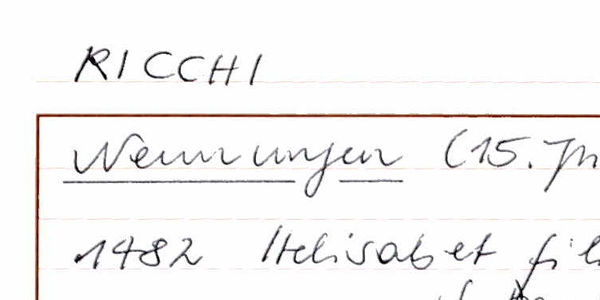 RICCHI
Nennungen (15. Jh
1482 Helisabet fil